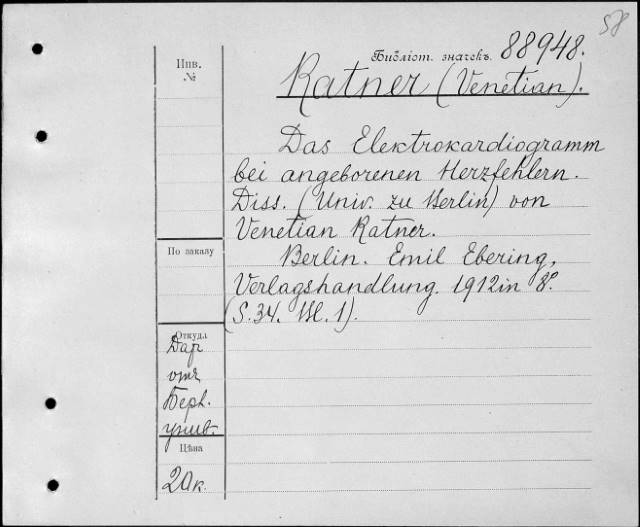 58
Инв.
№
Библіот. значекъ. 88948.
Ratner (Venetian).
Das Elektrokardiogramm
bei angeborenen Herzfehlern.
Diss. (Univ. zu Berlin) von
Venetian Ratner.
По заказу
Berlin. Emil Ebering,
Verlagshandlung. 1912 in 8º.
(S. 34. Bl. 1).
Откуда
Дар
отъ
Берл.
унив.
Цѣна
20 к.